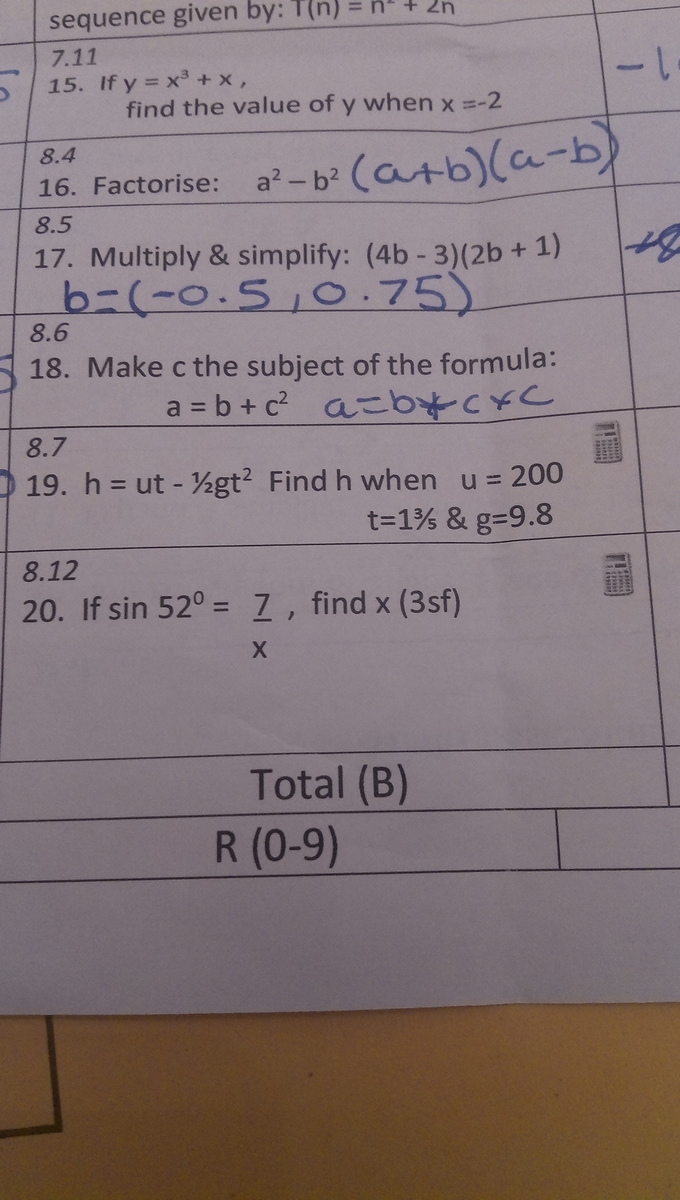 sequence given by: T(n) = n² + 2n
7.11
15. If y = x³ + x ,
find the value of y when x =-2
8.4
16. Factorise: a² – b² (a+b)(a-b)
8.5
17. Multiply & simplify: (4b - 3)(2b + 1)
b=(-0.5,0.75)
8.6
18. Make c the subject of the formula:
a = b + c² a=b+c×c
8.7
19. h = ut - ½gt² Find h when u = 200
t=1⅗ & g=9.8
8.12
20. If sin 52⁰ = 7 , find x (3sf)
x
Total (B)
R (0-9)